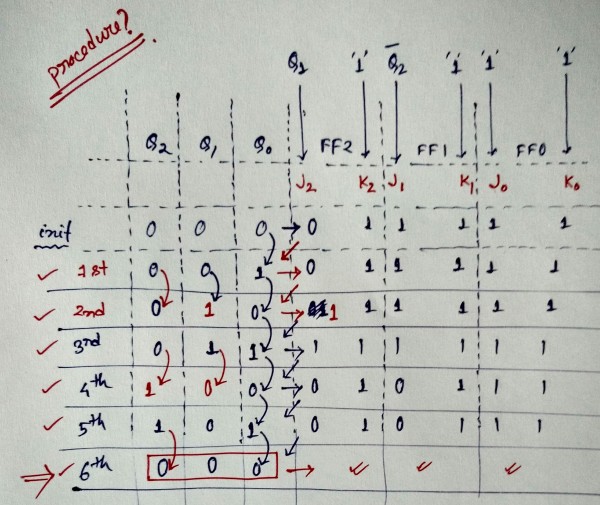 procedure?
Q1 '1' Q̅2 '1' '1' '1'
Q2 Q1 Q0 FF2 FF1 FF0
J2 K2 J1 K1 J0 K0
init 0 0 0 → 0 1 1 1 1 1
✓ 1st 0 0 1 → 0 1 1 1 1 1
✓ 2nd 0 1 0 → 1 1 1 1 1 1
✓ 3rd 0 1 1 → 1 1 1 1 1 1
✓ 4th 1 0 0 → 0 1 0 1 1 1
✓ 5th 1 0 1 0 1 0 1 1 1
⇒ ✓ 6th 0 0 0 → ✓ ✓ ✓